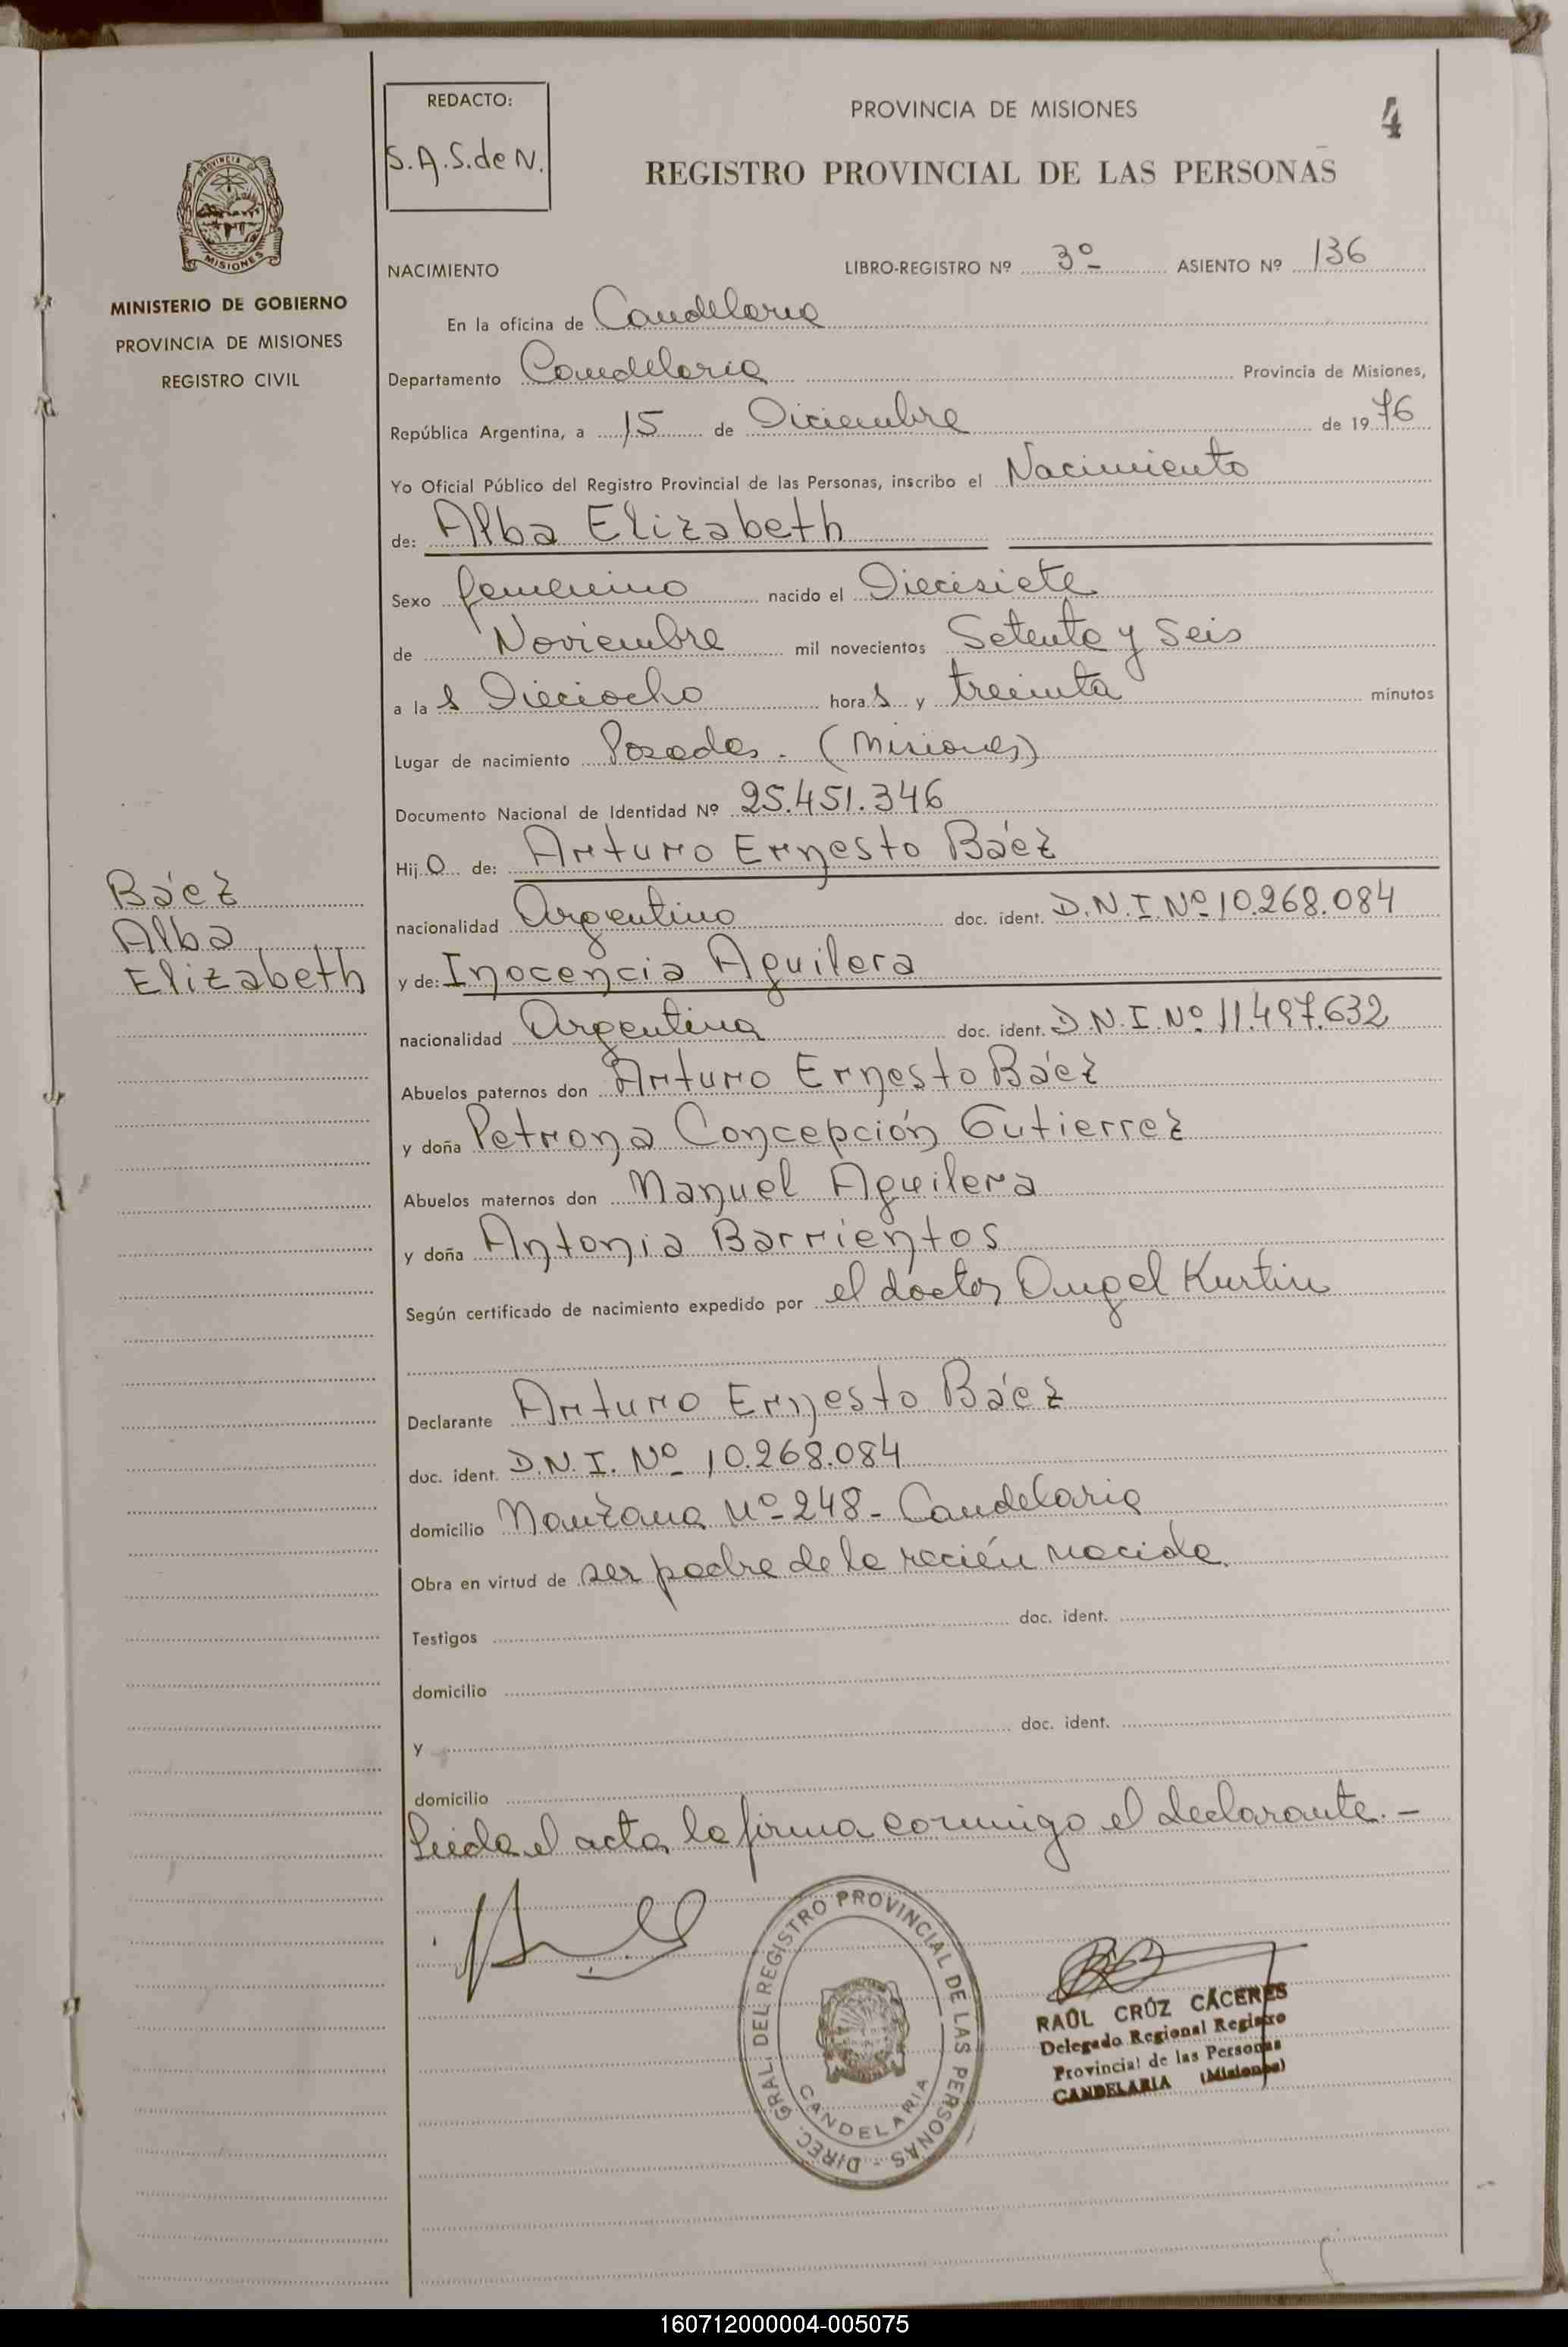 REDACTO:
S.A.S.de N.
PROVINCIA DE MISIONES
4
REGISTRO PROVINCIAL DE LAS PERSONAS
PROVINCIA DE
MISIONES
MINISTERIO DE GOBIERNO
PROVINCIA DE MISIONES
REGISTRO CIVIL
NACIMIENTO LIBRO-REGISTRO Nº 3º ASIENTO Nº 136
En la oficina de Candelaria
Departamento Candelaria Provincia de Misiones,
República Argentina, a 15 de Diciembre de 1976
Yo Oficial Público del Registro Provincial de las Personas, inscribo el Nacimiento
de: Alba Elizabeth
Sexo femenino nacido el Diecisiete
de Noviembre mil novecientos Setenta y Seis
a las Dieciocho horas y treinta minutos
Lugar de nacimiento Posadas. (Misiones)
Documento Nacional de Identidad Nº 25.451.346
Hijo de: Arturo Ernesto Báez
Báez
Alba
Elizabeth
nacionalidad Argentino doc. ident. D.N.I. Nº 10.268.084
y de: Inocencia Aguilera
nacionalidad Argentina doc. ident. D.N.I. Nº 11.497.632
Abuelos paternos don Arturo Ernesto Báez
y doña Petrona Concepción Gutierrez
Abuelos maternos don Manuel Aguilera
y doña Antonia Barrientos
Según certificado de nacimiento expedido por el doctor Angel Kurtin
Declarante Arturo Ernesto Báez
doc. ident. D.N.I. Nº 10.268.084
domicilio Manzana Nº 248 - Candelaria
Obra en virtud de ser padre de la recién nacida.
Testigos doc. ident.
domicilio
y doc. ident.
domicilio
Leida el acta la firma conmigo el declarante.-
DIREC. GRAL. DEL REGISTRO PROVINCIAL DE LAS PERSONAS -
CANDELARIA
RAÚL CRÚZ CÁCERES
Delegado Regional Registro
Provincial de las Personas
CANDELARIA (Misiones)
160712000004-005075